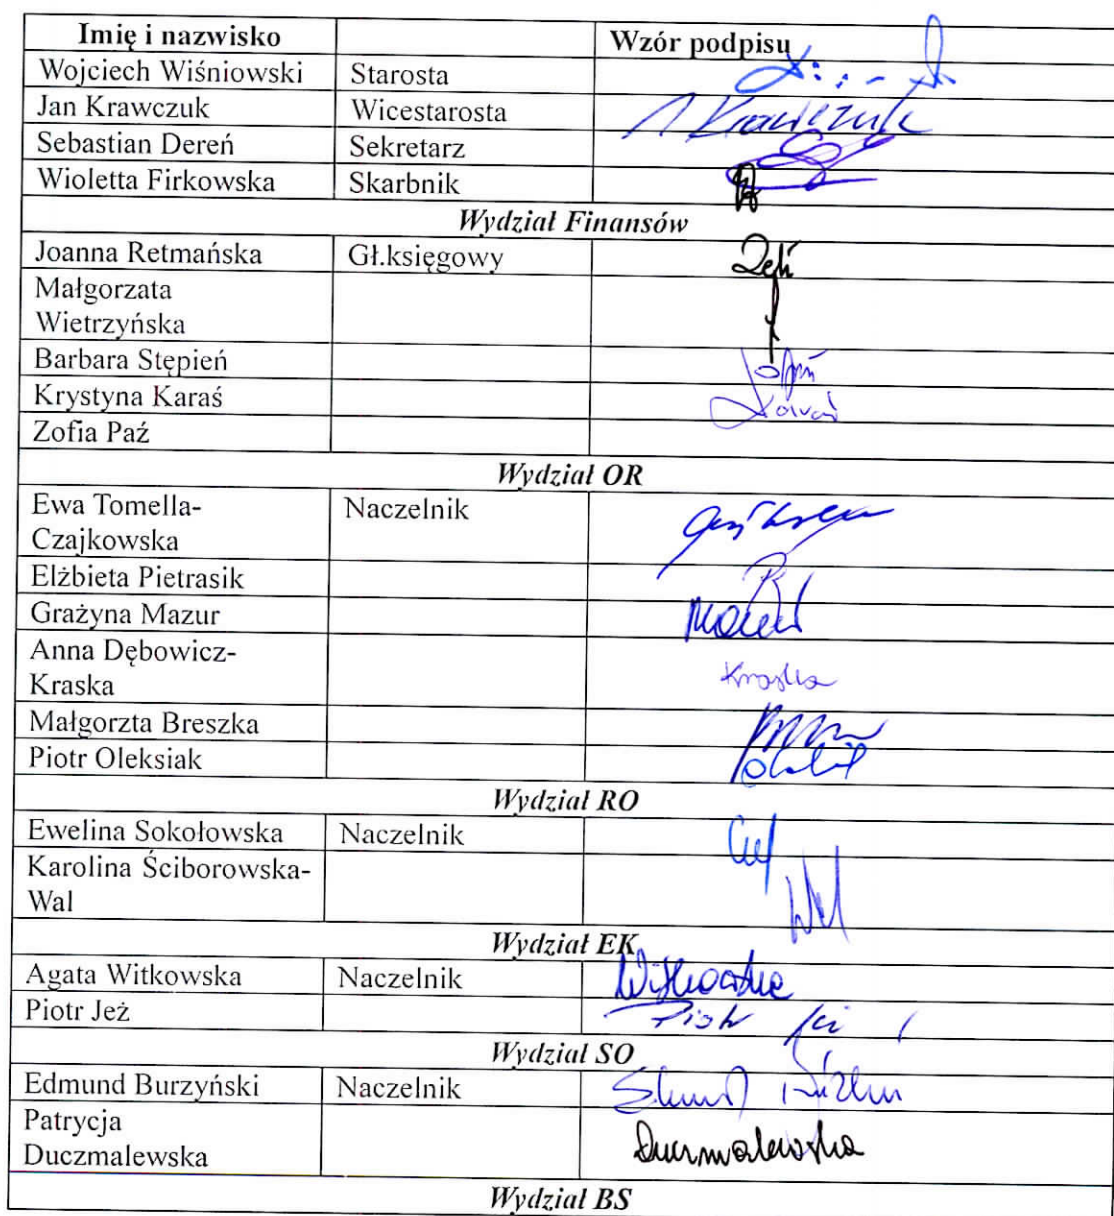 Imię i nazwisko Wzór podpisu
Wojciech Wiśniowski Starosta
Jan Krawczuk Wicestarosta Krawczuk
Sebastian Dereń Sekretarz
Wioletta Firkowska Skarbnik
Wydział Finansów
Joanna Retmańska Gł.księgowy
Małgorzata
Wietrzyńska
Barbara Stępień
Krystyna Karaś Karaś
Zofia Paź
Wydział OR
Ewa Tomella- Naczelnik
Czajkowska
Elżbieta Pietrasik
Grażyna Mazur Mazur
Anna Dębowicz-
Kraska Kraska
Małgorzta Breszka
Piotr Oleksiak
Wydział RO
Ewelina Sokołowska Naczelnik
Karolina Ściborowska-
Wal
Wydział EK
Agata Witkowska Naczelnik Witkowska
Piotr Jeż Piotr Jeż
Wydział SO
Edmund Burzyński Naczelnik
Patrycja
Duczmalewska Duczmalewska
Wydział BS